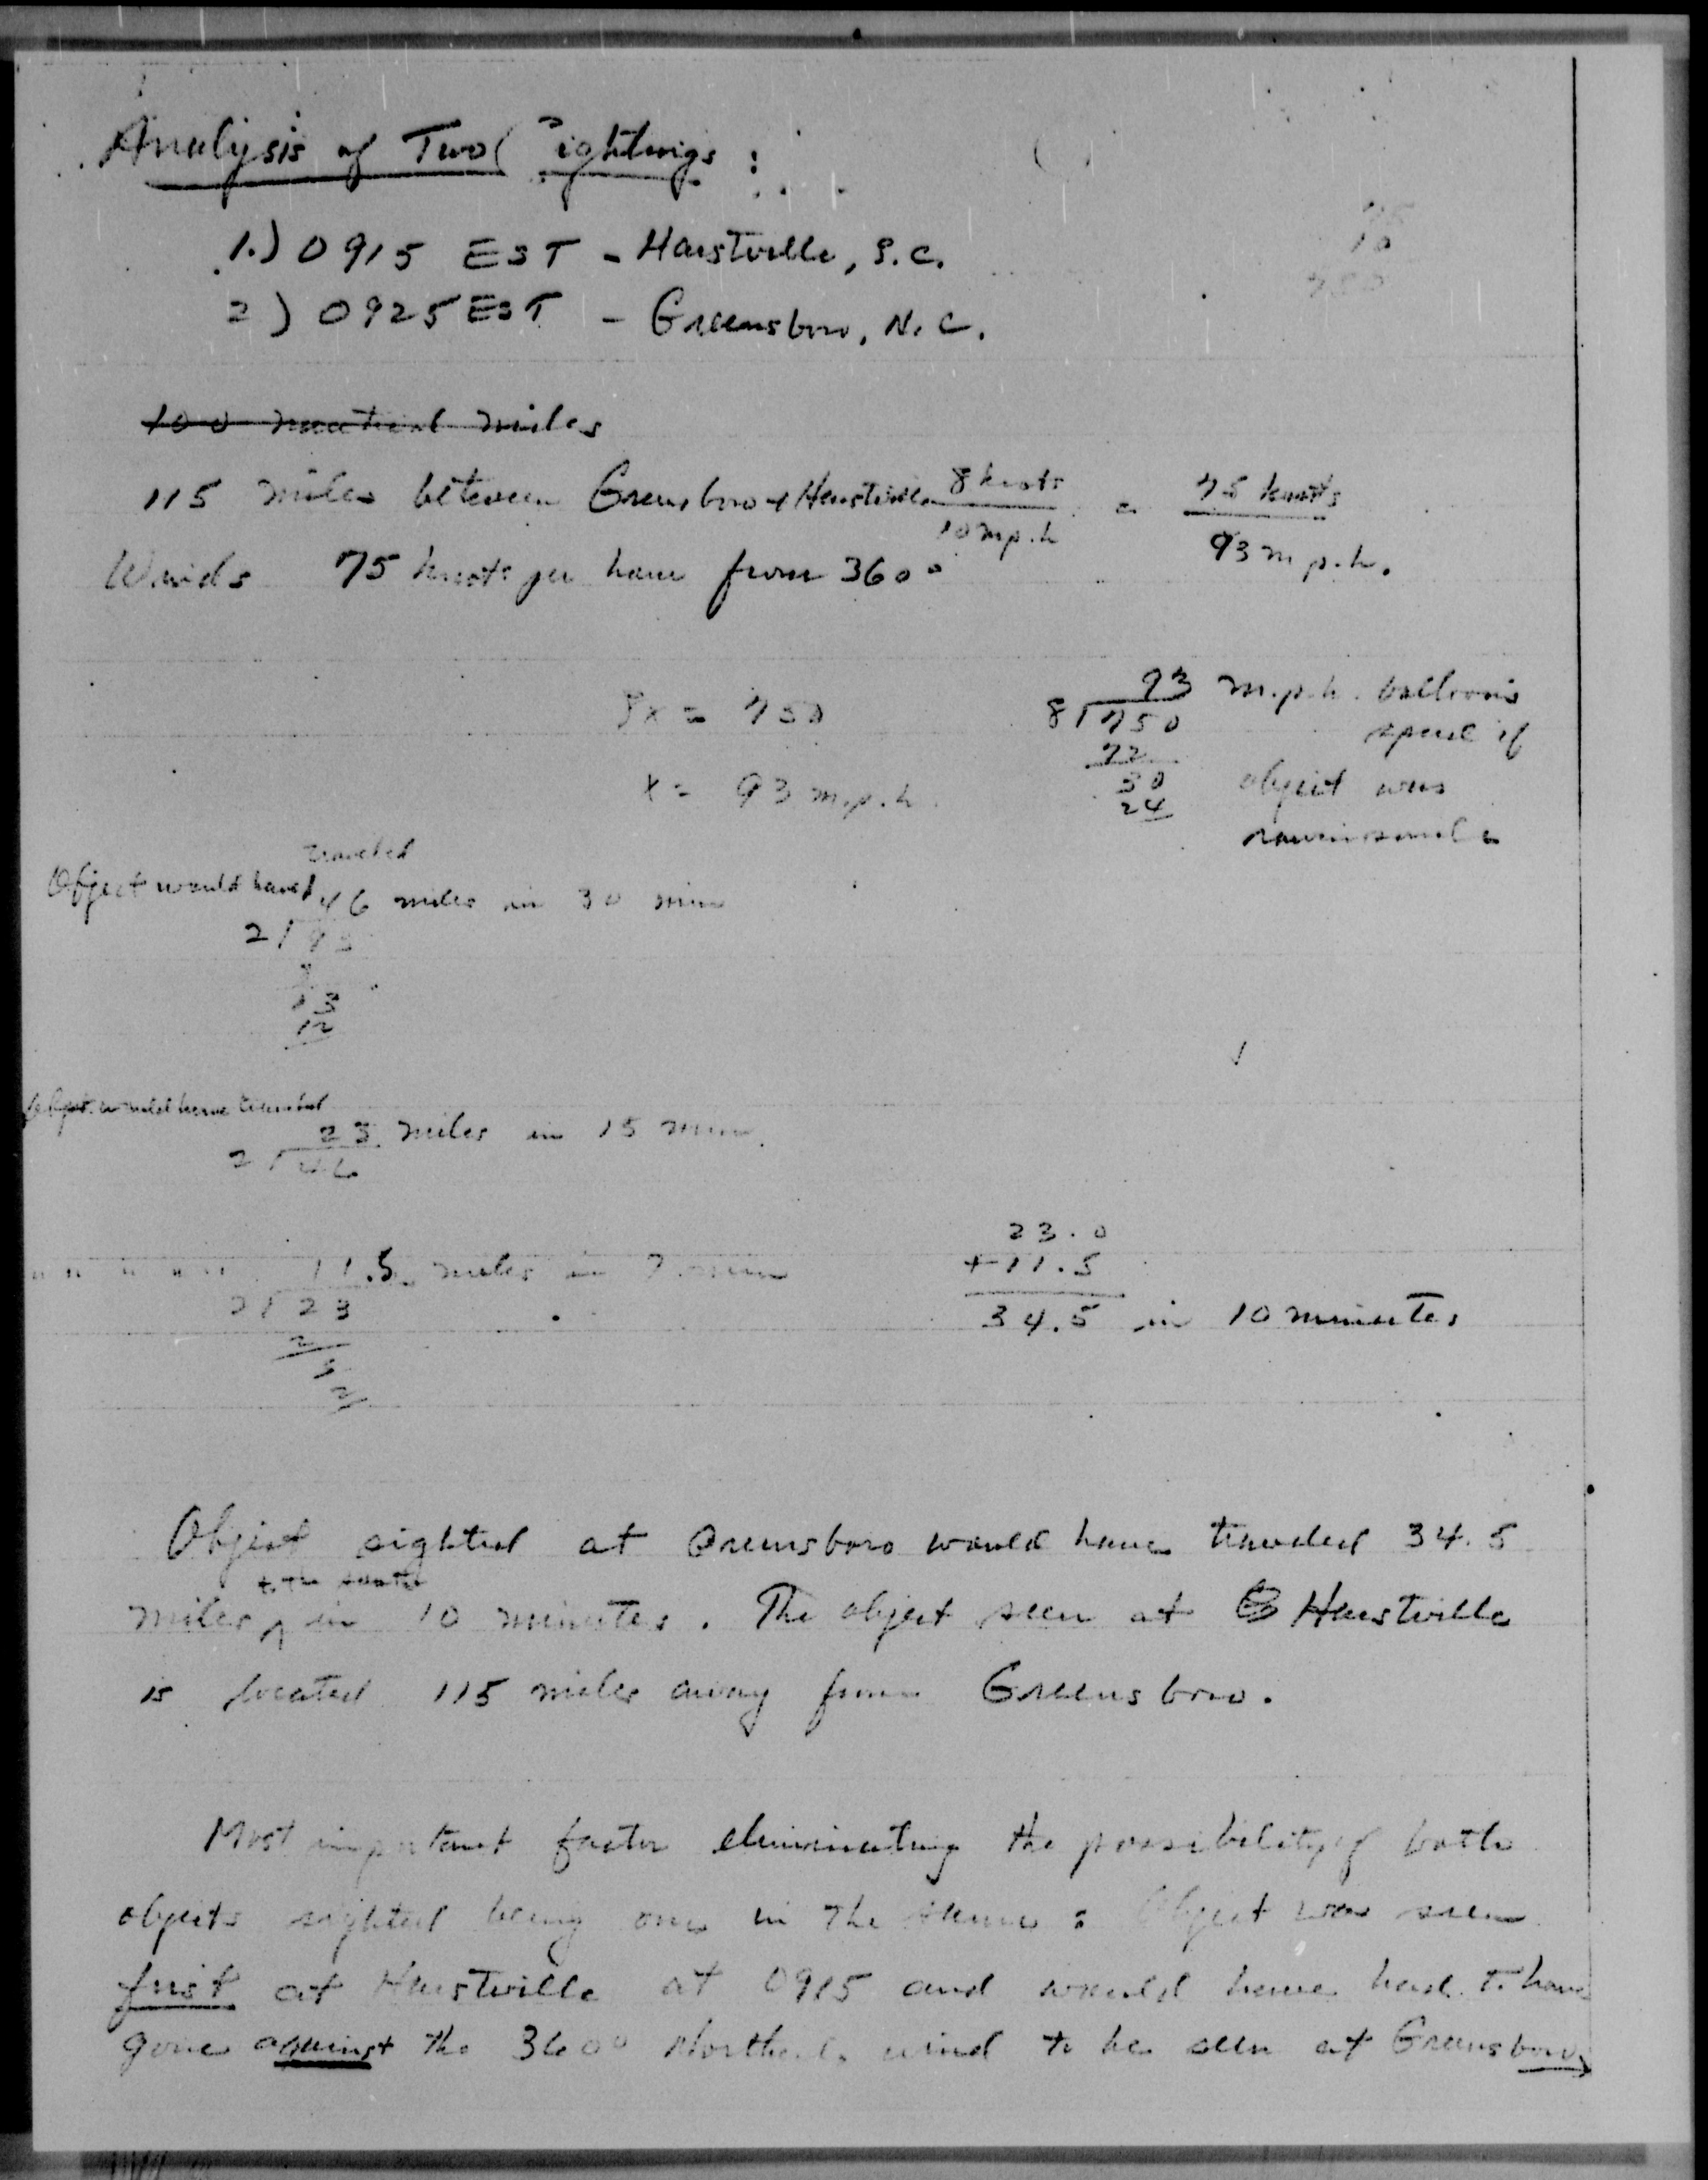 Analysis of Two Sightings :
1.) 0915 EST - Hartsville, S.C.
2) 0925 EST - Greensboro, N.C.
75
10
750
100 nautical miles
115 miles between Greensboro & Hartsville 8 knots / 10 mph = 75 knots / 93 m.p.h.
Winds 75 knots per hour from 360°
8x = 750
x = 93 m.p.h.
93 m.p.h. balloons
8 750 speed if
72
30 object was
24
rawinsonde
traveled
Object would have 46 miles in 30 min
2 93
8
13
12
Object would have traveled
23 miles in 15 min.
2 46
" " " " " 11.5 miles in 7 min
2 23
2
3
2
23.0
+ 11.5
34.5 in 10 minutes
Object sighted at Greensboro would have traveled 34.5
to the south
miles ^ in 10 minutes. The object seen at Hartsville
is located 115 miles away from Greensboro.
Most important factor eliminating the possibility of both
objects sighted being one in the same : Object was seen
first at Hartsville at 0915 and would have had to have
gone against the 360° Northerly wind to be seen at Greensboro